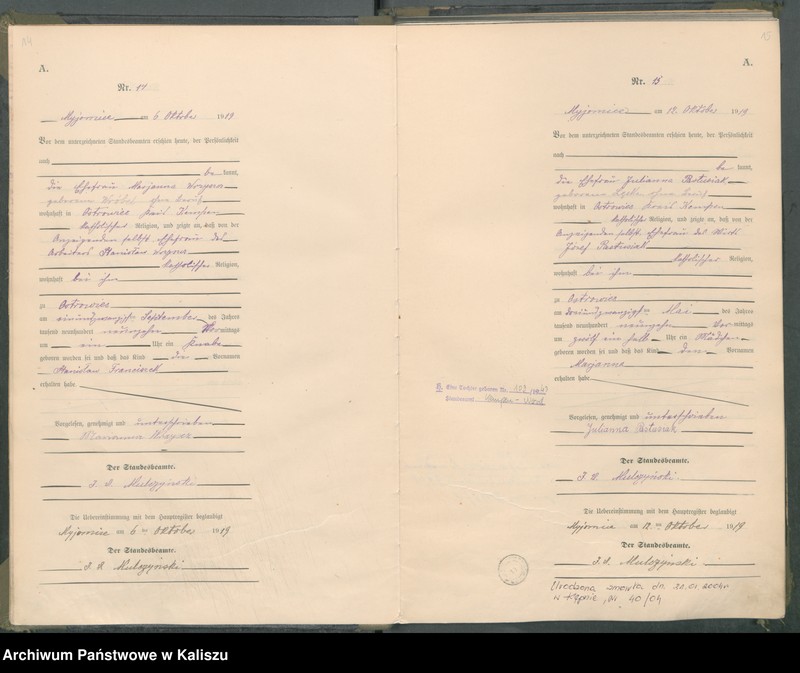 A.
Nr. 14
Myjomice am 6 Oktober 1919
Vor dem unterzeichneten Standesbeamten erschien heute, der Persönlichkeit
nach
be kannt,
die Ehefrau Marjanna
geborene ohne Beruf
wohnhaft in Ostrowiec Kreis Kempen
katholischer Religion, und zeigte an, daß von der
Anzeigenden selbst Ehefrau des
Arbeiters Stanislaw
katholischer Religion,
wohnhaft bei ihm
zu Ostrowiec
am einundzwanzigsten September des Jahres
tausend neunhundert neunzehn Vormittags
um ein Uhr ein Knabe
geboren worden sei und daß das Kind den Vornamen
Stanislau Franciszek
erhalten habe
Vorgelesen, genehmigt und unterschrieben
Marianna
Der Standesbeamte.
J. V.
Die Uebereinstimmung mit dem Hauptregister beglaubigt
Myjomice am 6ten Oktober 1919
Der Standesbeamte.
J. V.
15
A.
Nr. 15
Myjomice am 12. Oktober 1919
Vor dem unterzeichneten Standesbeamten erschien heute, der Persönlichkeit
nach
be kannt,
die Ehefrau Julianna Pastusiak
geborene ohne Beruf
wohnhaft in Ostrowiec Kreis Kempen
katholischer Religion, und zeigte an, daß von der
Anzeigenden selbst Ehefrau des
Józef Pastusiak
katholischer Religion,
wohnhaft bei ihm
zu Ostrowiec
am dreiundzwanzigsten Mai des Jahres
tausend neunhundert neunzehn Vormittags
um zwölf ein halb Uhr ein Mädchen
geboren worden sei und daß das Kind den Vornamen
Marjanna
erhalten habe
Vorgelesen, genehmigt und unterschrieben
Julianna Pastusiak
Der Standesbeamte.
J. V.
Die Uebereinstimmung mit dem Hauptregister beglaubigt
Myjomice am 12ten Oktober 1919
Der Standesbeamte.
J. V.
Urodzona zmarła dn. 22.01.2004r
w Kępnie, nr 40/04
Archiwum Państwowe w Kaliszu